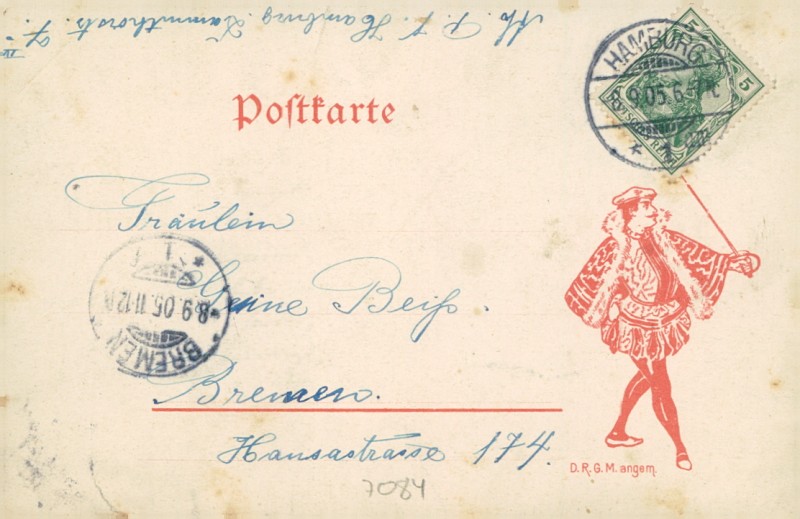 Hamburg
5
5
HAMBURG
9.05.6
* 1
Postkarte
Fräulein
Beiß.
Bremen.
Hansastrasse 174.
* 1
8.9.05.11-12
BREMEN
D.R.G.M. angem.
7084